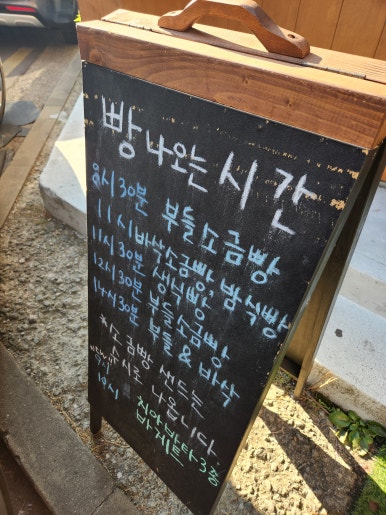 빵 나오는 시간
8시 30분 부들소금빵
11시 바삭소금빵, 밤식빵
11시 30분 생식빵
12시 30분 부들소금빵
14시 30분 부들 & 바삭
※소금빵 샌드는
수시로 나옵니다
9시 치아바타3종
10시 바게트